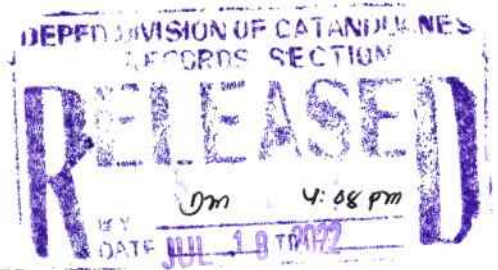 DEPED DIVISION OF CATANDUANES
RECORDS SECTION
RELEASED
4:08 pm
BY
DATE JUL 18 2022